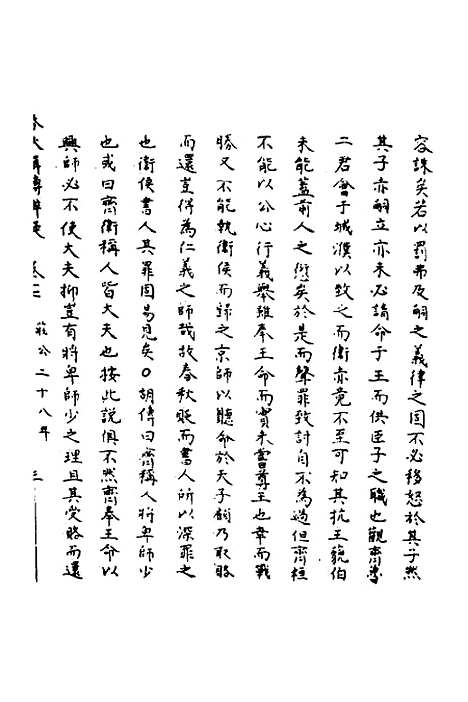 容誅矣若以罰弗及嗣之義律之固不必移怒於其子然
其子亦嗣立亦未必請命于王而供臣子之職也觀齊魯
二君會于城濮以致之而衛亦竟不至可知其抗王藐伯
未能蓋前人之愆矣於是而聲罪致討自不為過但齊桓
不能以公心行義舉雖奉王命而實未嘗尊王也幸而戰
勝又不能執衛侯而歸之京師以聽命於天子顧乃取賂
而還豈得為仁義之師哉故春秋貶而書人所以深罪之
也衛侯書人其罪固易見矣○胡傳曰齊稱人將卑師少
也或曰齊衛稱人皆大夫也按此說俱不然齊奉王命以
興師必不使大夫抑豈有將卑師少之理且其受賂而還
春秋輯傳辨疑 卷二 莊公二十八年 三